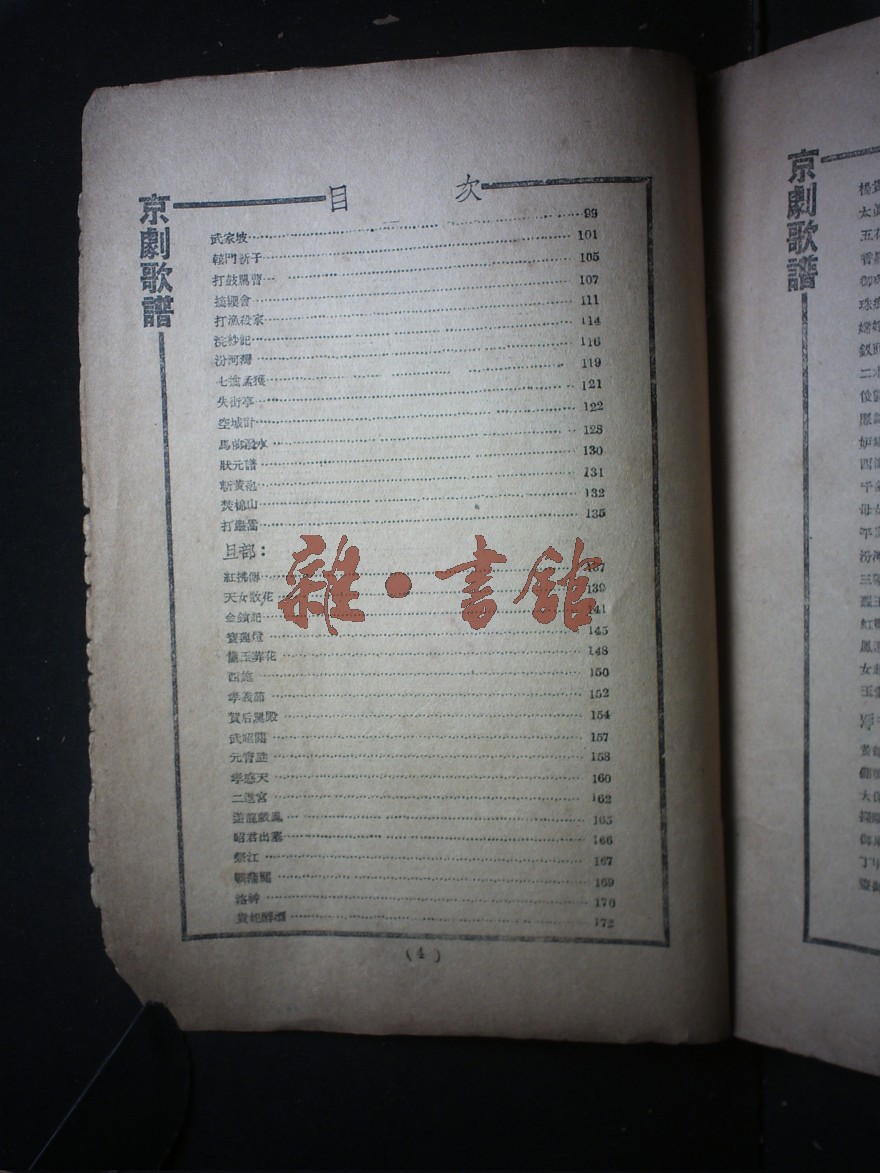 京劇歌譜
目 次
武家坡 99
轅門斬子 101
打鼓罵曹 105
摘纓會 107
打漁殺家 111
浣紗記 114
汾河灣 116
七擒孟獲 119
失街亭 121
空城計 122
馬前潑水 128
狀元譜 130
斬黃袍 131
焚棉山 132
打嚴嵩 135
旦部：
紅拂傳 137
天女散花 139
金鎖記 141
寶蓮燈 145
黛玉葬花 148
西施 150
孝義節 152
賀后罵殿 154
武昭關 157
元宵謎 158
孝感天 160
二進宮 162
遊龍戲鳳 165
昭君出塞 166
祭江 167
169
洛神 170
貴妃醉酒 172
(4)
雜·書館
京劇歌譜